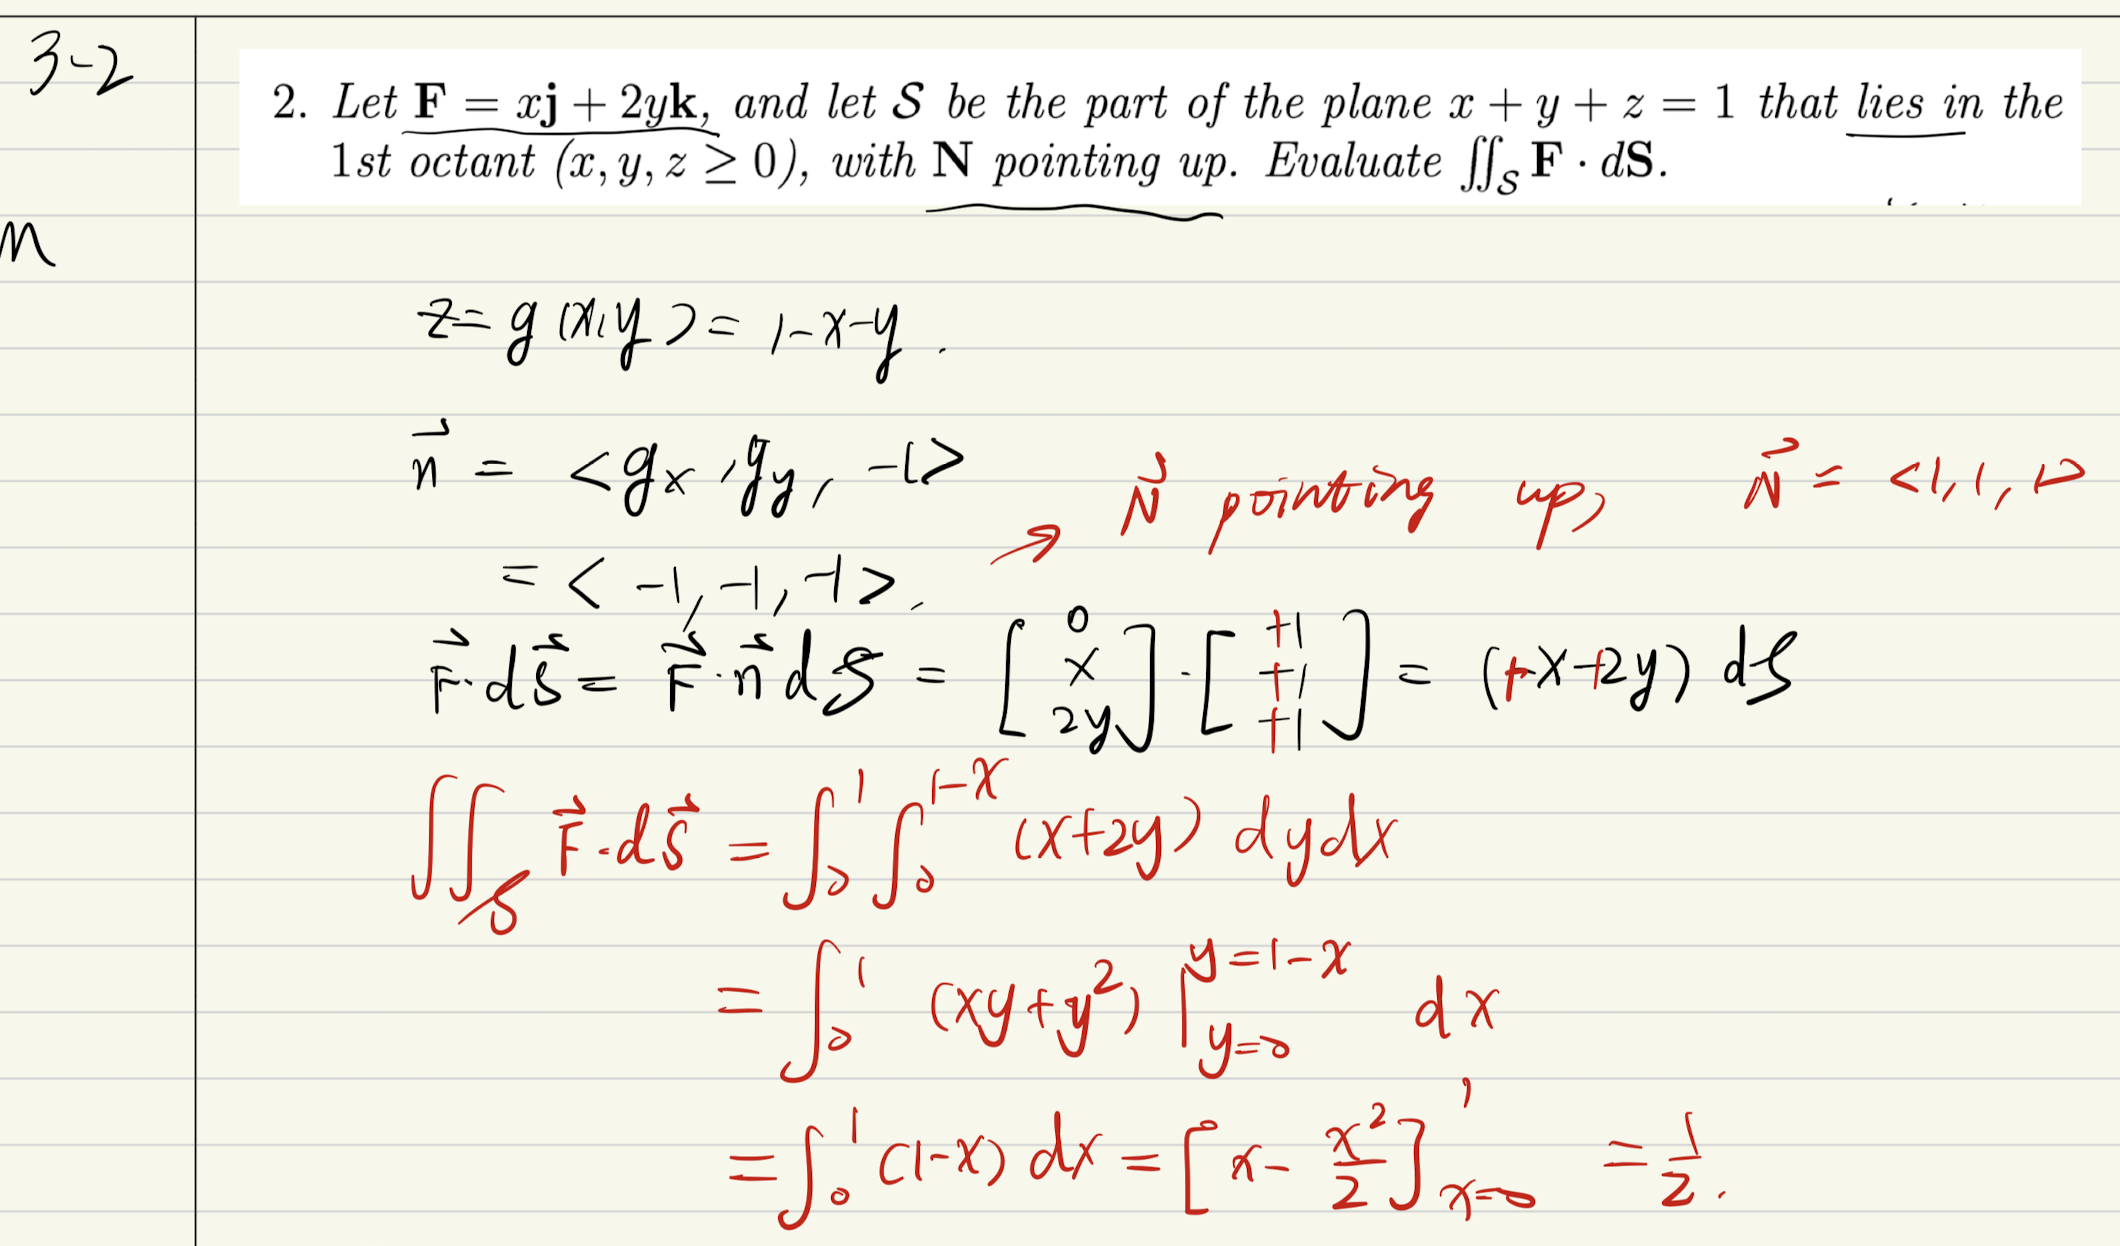 3-2
2. Let F = xj + 2yk, and let S be the part of the plane x + y + z = 1 that lies in the
1st octant (x, y, z ≥ 0), with N pointing up. Evaluate ∬_S F · dS.
m
z = g(x,y) = 1-x-y.
n⃗ = <g_x, g_y, -1>
N⃗ pointing up, N⃗ = <1, 1, 1>
= <-1, -1, -1>. →
F⃗·dS⃗ = F⃗·n⃗ dS = [0 x 2y]·[+1 +1 +1] = (+x+2y) dS
∬_S F⃗·dS⃗ = ∫_0^1 ∫_0^{1-x} (x+2y) dydx
= ∫_0^1 (xy+y²) |_{y=0}^{y=1-x} dx
= ∫_0^1 (1-x) dx = [x - x²/2]_{x=0}^1 = 1/2.